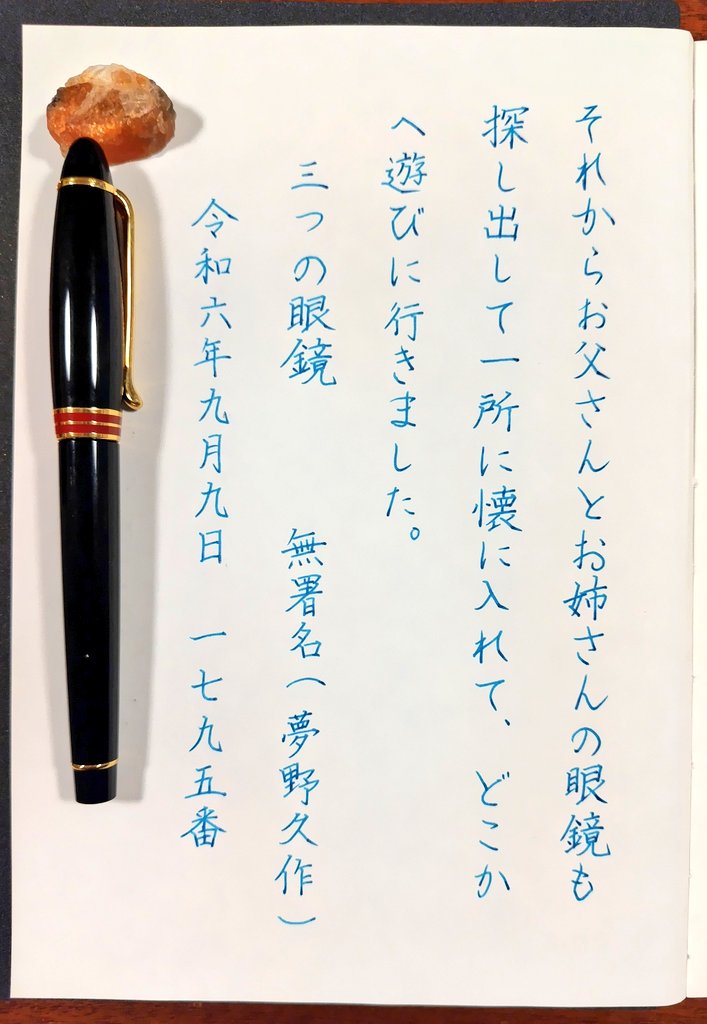 それからお父さんとお姉さんの眼鏡も
探し出して一所に懐に入れて、どこか
へ遊びに行きました。
三つの眼鏡　無署名（夢野久作）
令和六年九月九日　一七九五番